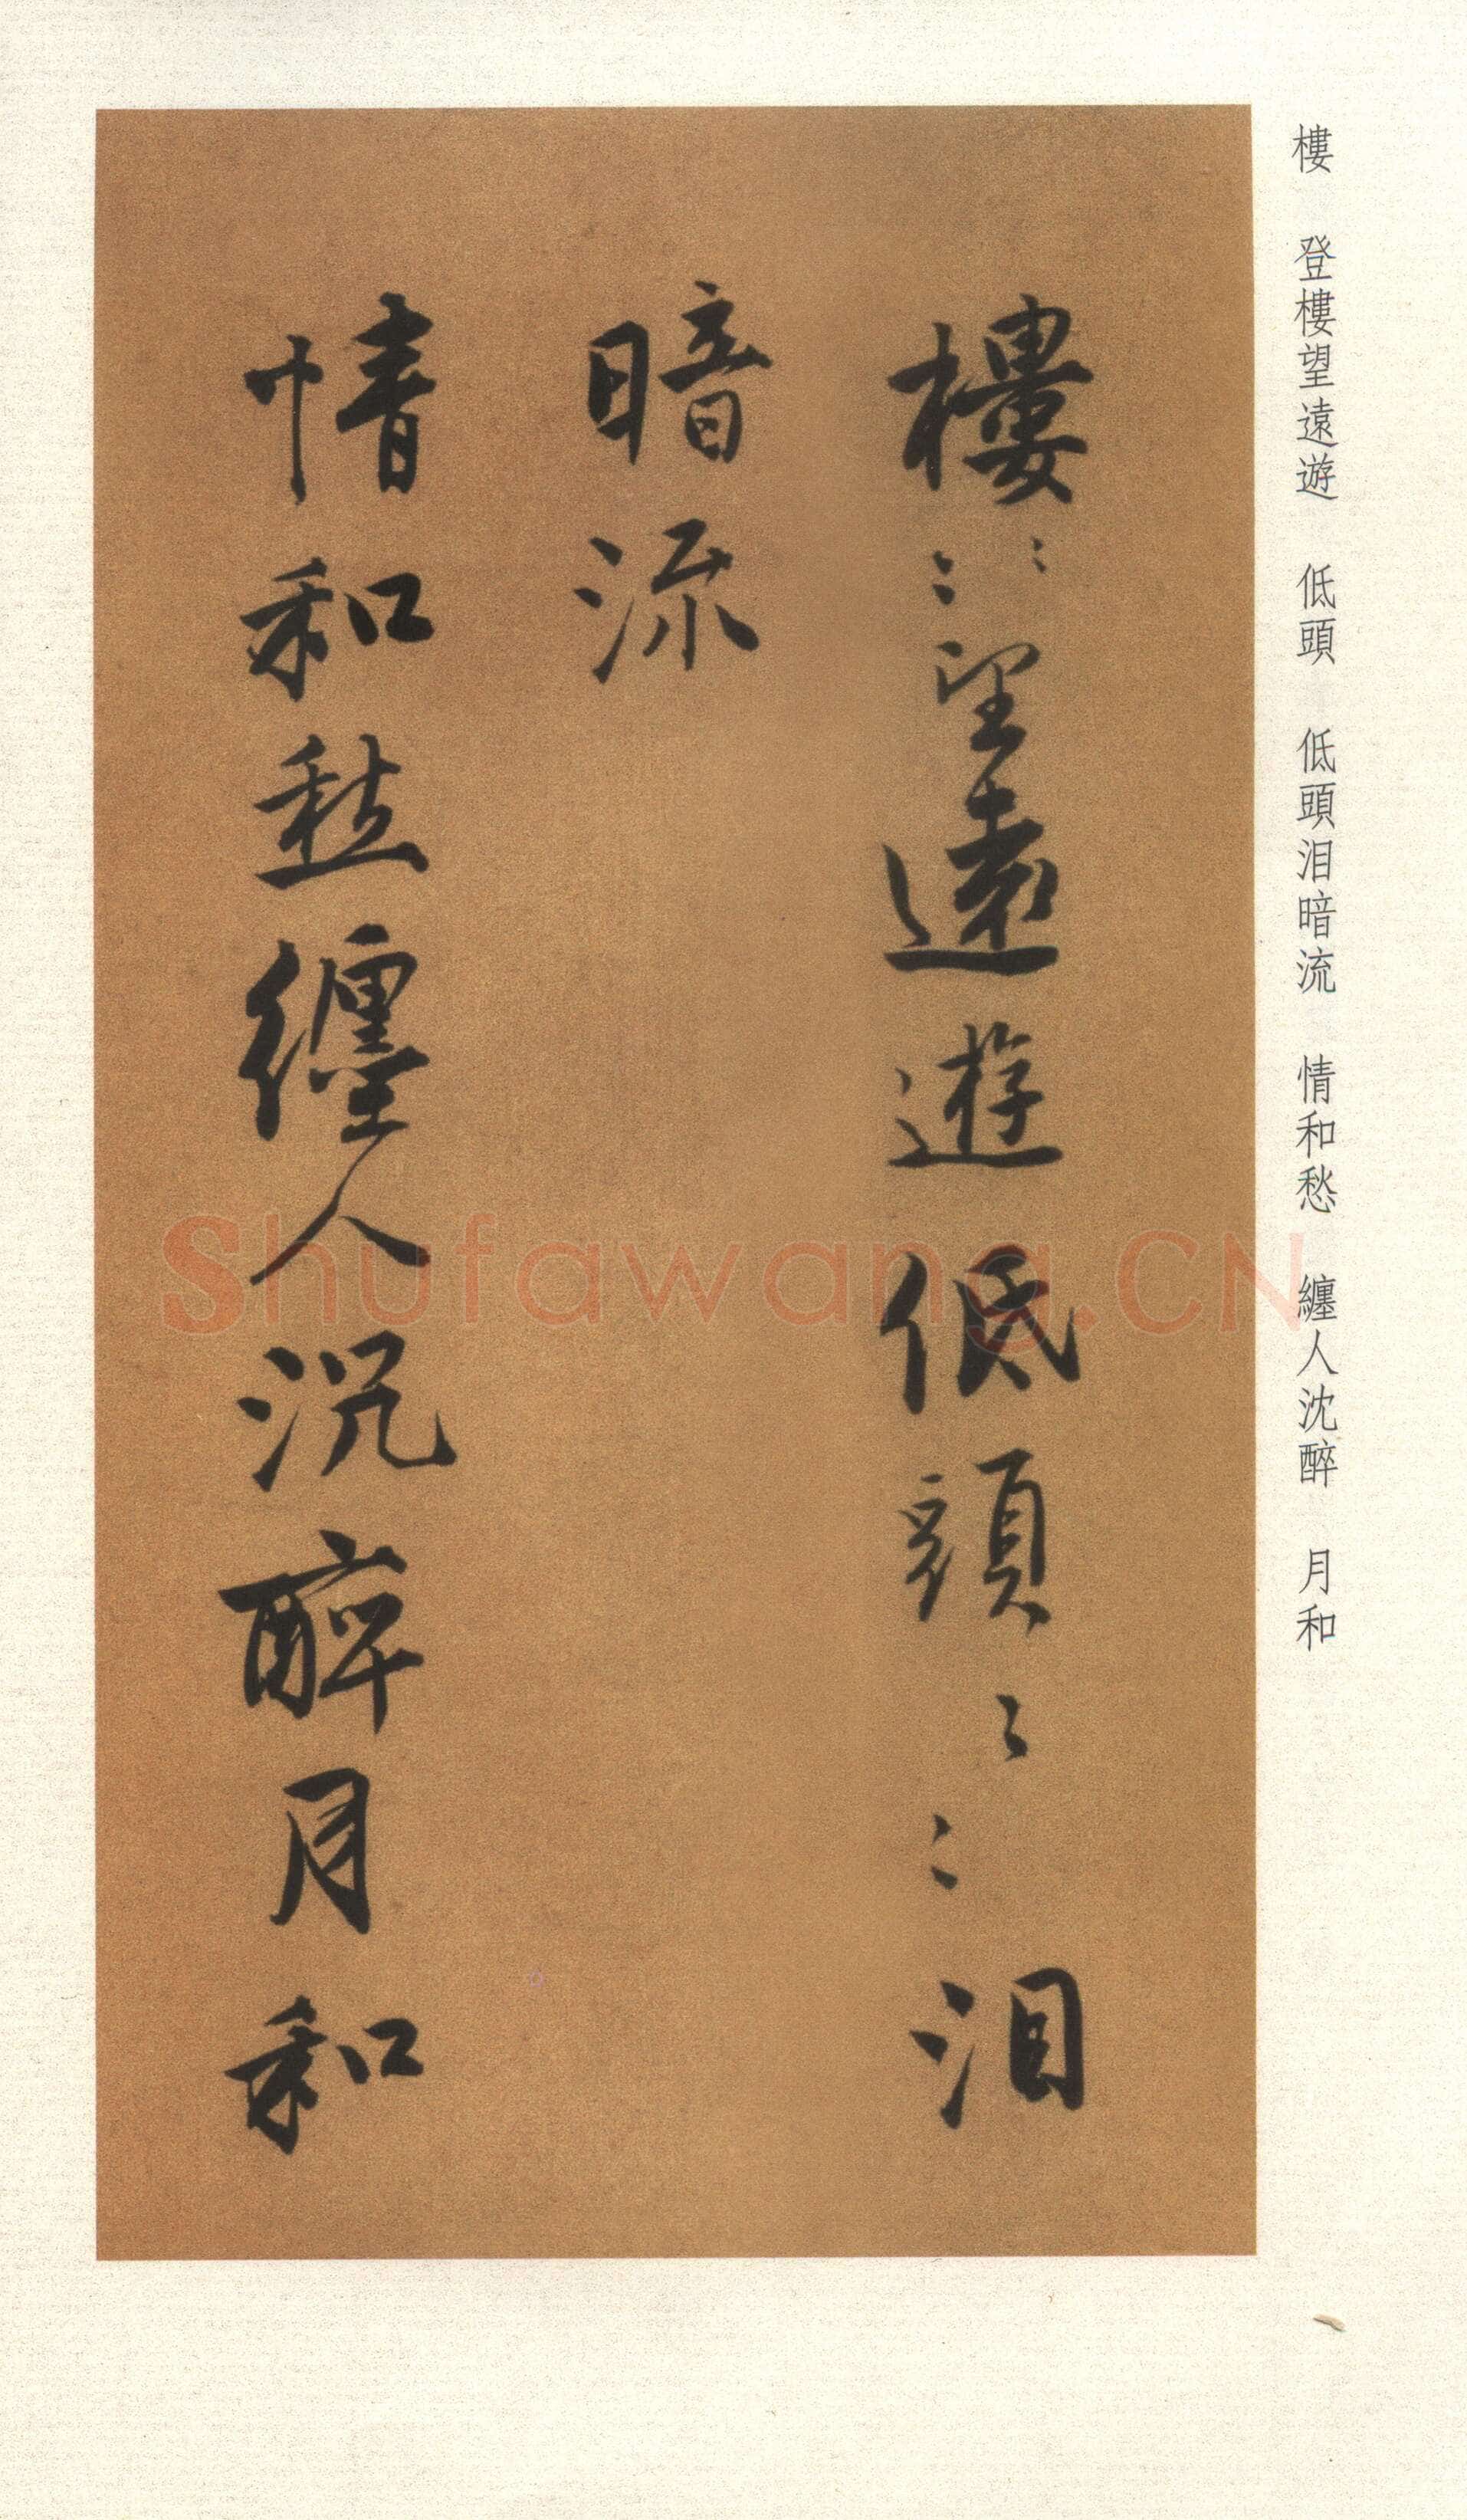 樓 登樓望遠遊 低頭 低頭泪暗流 情和愁 纏人沈醉 月和
樓〻〻望遠遊低頭〻〻泪
暗流
情和愁纏人沉醉月和
Shufawang.CN